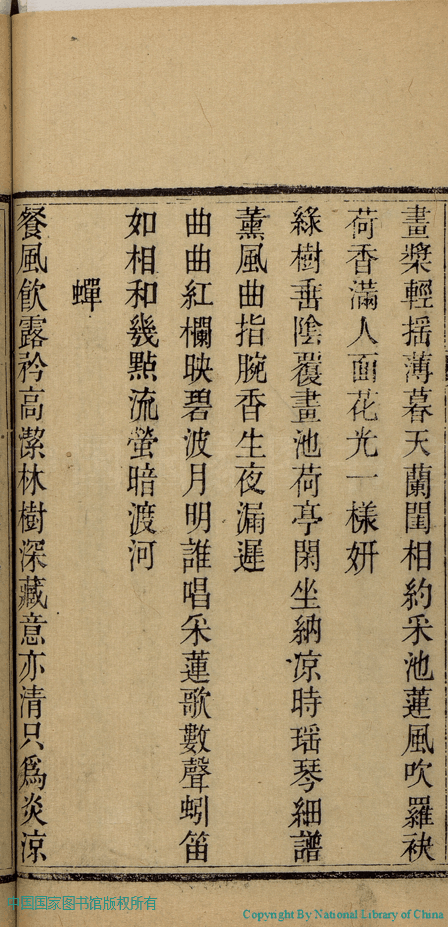 畫槳輕搖薄暮天蘭閨相約采池蓮風吹羅袂
荷香滿人面花光一樣妍
綠樹垂陰覆畫池荷亭閑坐納凉時瑶琴細譜
薰風曲指腕香生夜漏遲
曲曲紅欄映碧波月明誰唱采蓮歌數聲蚓笛
如相和幾點流螢暗渡河
蟬
餐風飲露矜高潔林樹深藏意亦清只爲炎凉
中国国家图书馆版权所有
Copyright By National Library of China